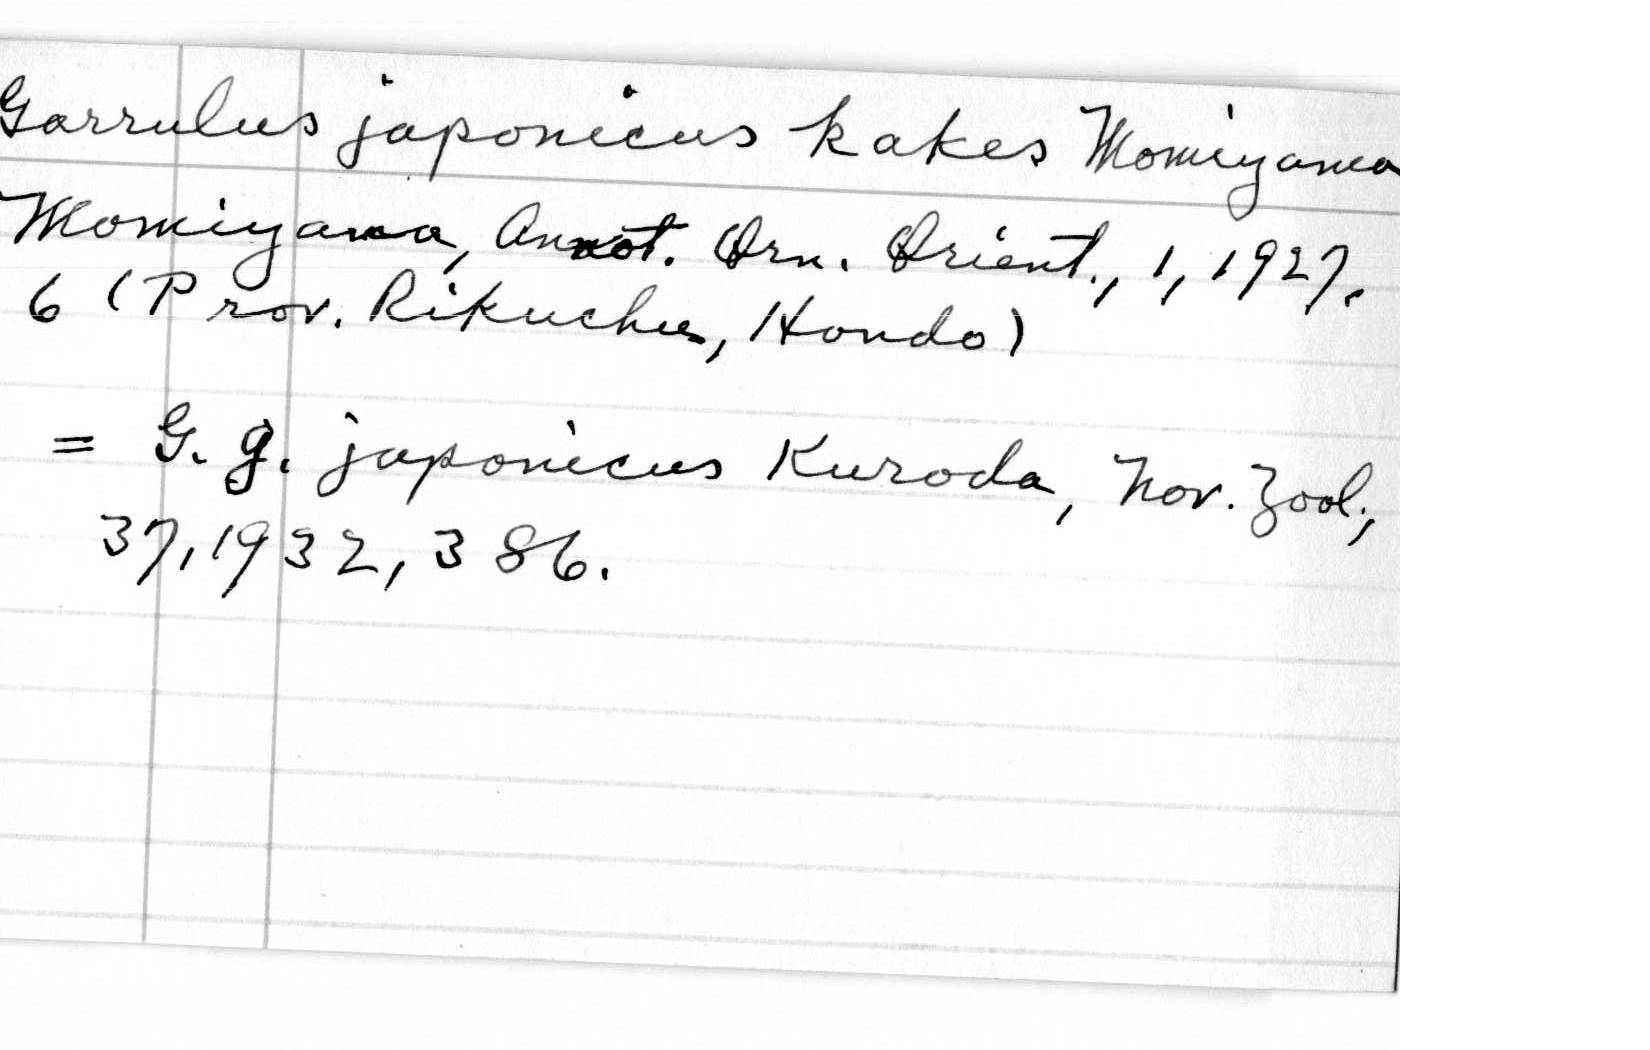 Garrulus japonicus kakes Momiyama
Momiyama, Annot. Orn. Orient., 1, 1927.
6 (Prov. Rikuchu, Hondo)
= G. g. japonicus Kuroda, Nov. Zool.,
37, 1932, 386.